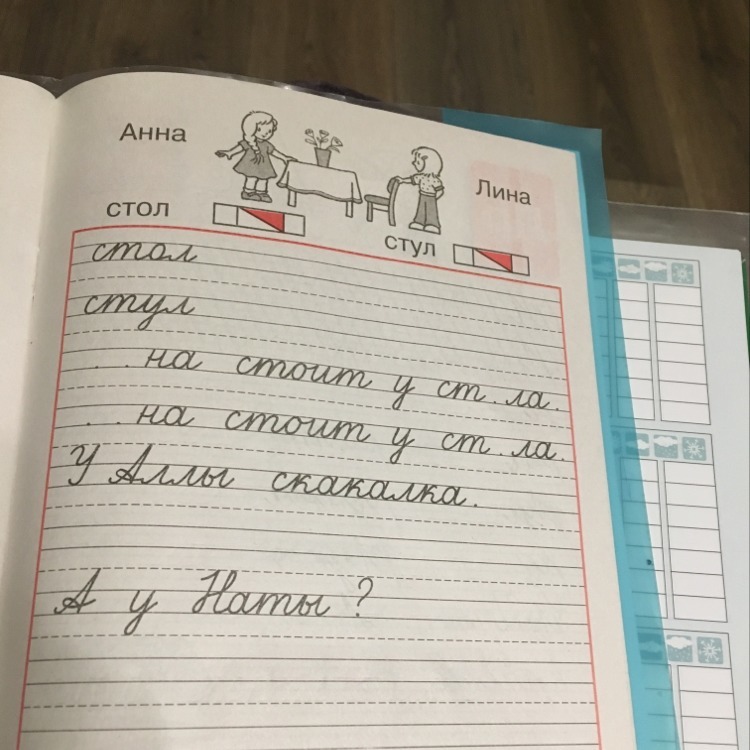 Анна
Лина
стол
стул
стол
стул
. . на стоит у ст . ла .
. . на стоит у ст . ла .
У Аллы скакалка .
А у Наты ?